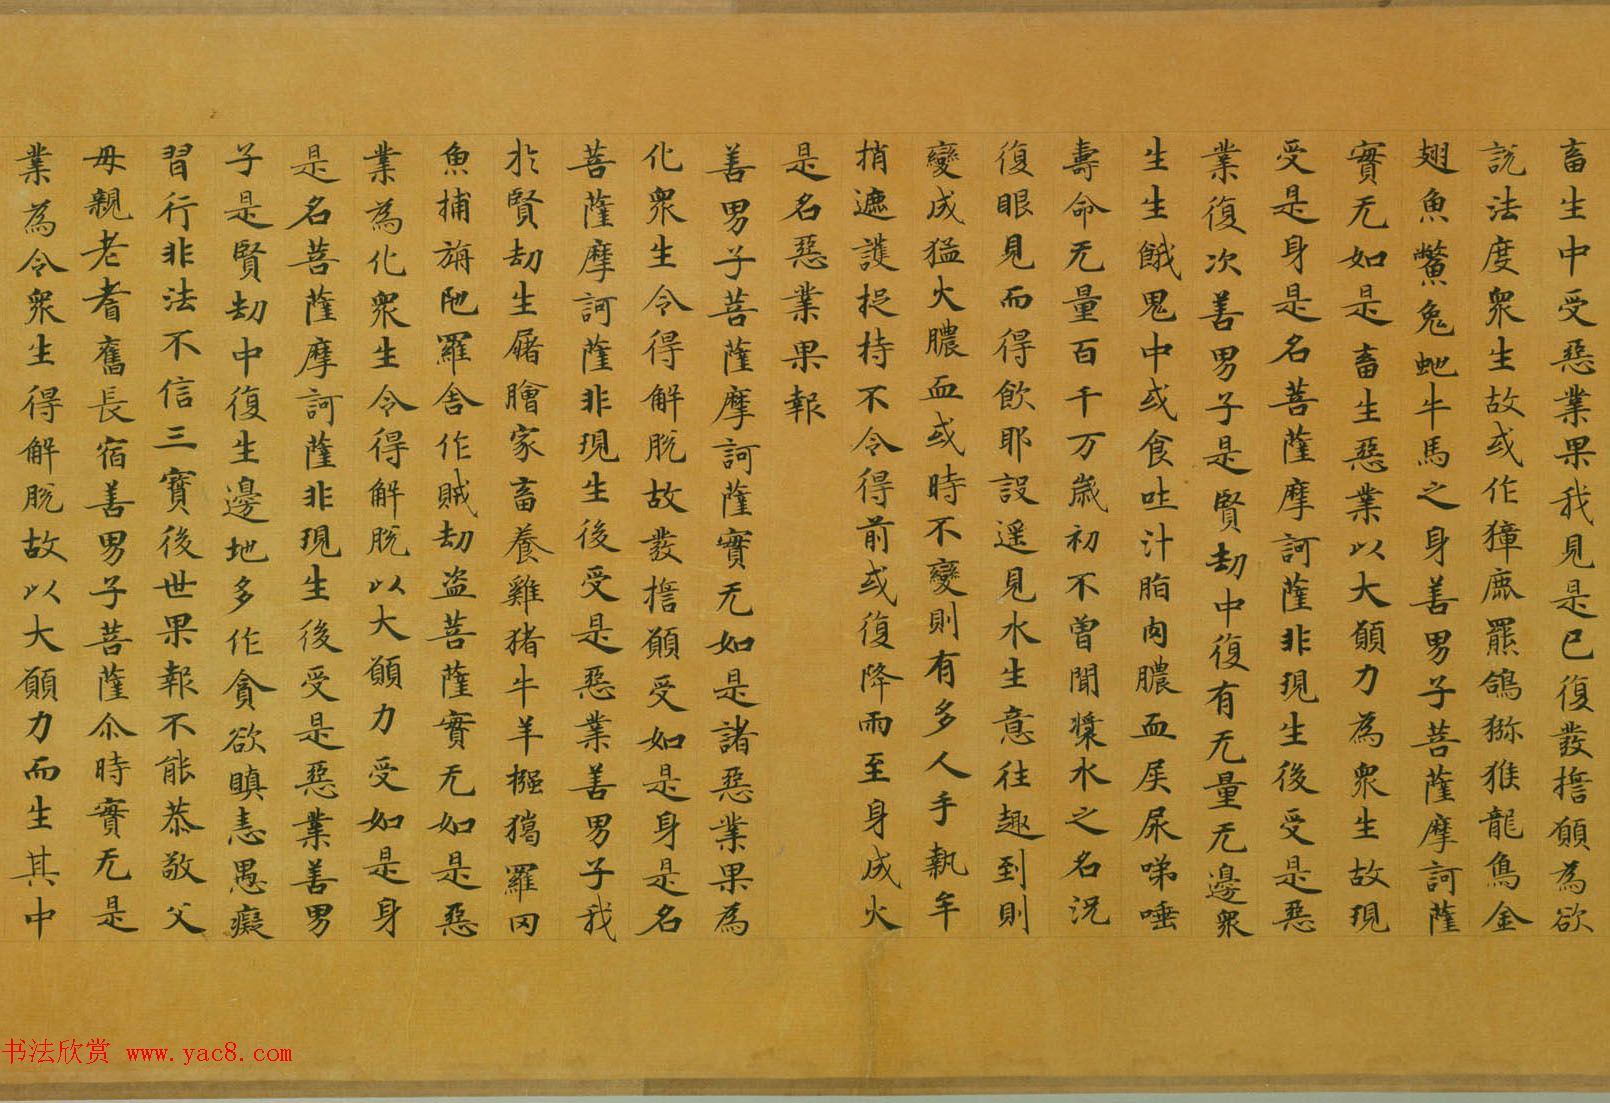 畜生中受惡業果我見是已復發擔願為欲
説法度衆生故或作獐鹿羆鴿獼猴龍鳥金
翅魚鱉兔虵牛馬之身善男子菩薩摩訶薩
實无如是畜生惡業以大願力為衆生故現
受是身是名菩薩摩訶薩非現生後受是惡
業復次善男子是賢劫中復有无量无邊衆
生生餓鬼中或食吐汁脂肉膿血屎尿唾唾
壽命无量百千万歲初不曽聞漿水之名況
復眼見而得飲耶設遥見水生意往趣到則
變成猛火膿血或時不變則有多人手執牟
捎遮護捉持不令得前或復降雨至身成火
是名惡業果報
善男子菩薩摩訶薩實无如是諸惡業果為
化衆生令得解脱故發擔願受如是身是名
菩薩摩訶薩非現生後受是惡業善男子我
於賢劫生屠膾家畜養雞猪牛羊㩭獦羅冈
魚捕旃陁羅舍作賊劫盗菩薩實无如是惡
業為化衆生令得解脱以大願力受如是身
是名菩薩摩訶薩非現生後受是惡業善男
子是賢劫中復生邊地多作貪欲瞋恚愚癡
習行非法不信三寶後世果報不能恭敬父
母親老耆舊長宿善男子菩薩尒時實无是
業為令衆生得解脱故以大願力而生其中
书法欣赏 www.yac8.com